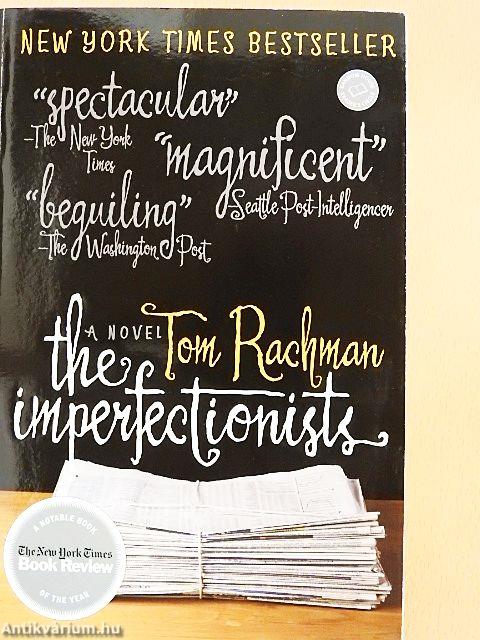 NEW YORK TIMES BESTSELLER
“spectacular”
–The New York
Times
“magnificent”
–Seattle Post-Intelligencer
“beguiling”
–The Washington Post
A NOVEL
Tom Rachman
the
imperfectionists
A NOTABLE BOOK
The New York Times
Book Review
OF THE YEAR
Antikvárium.hu